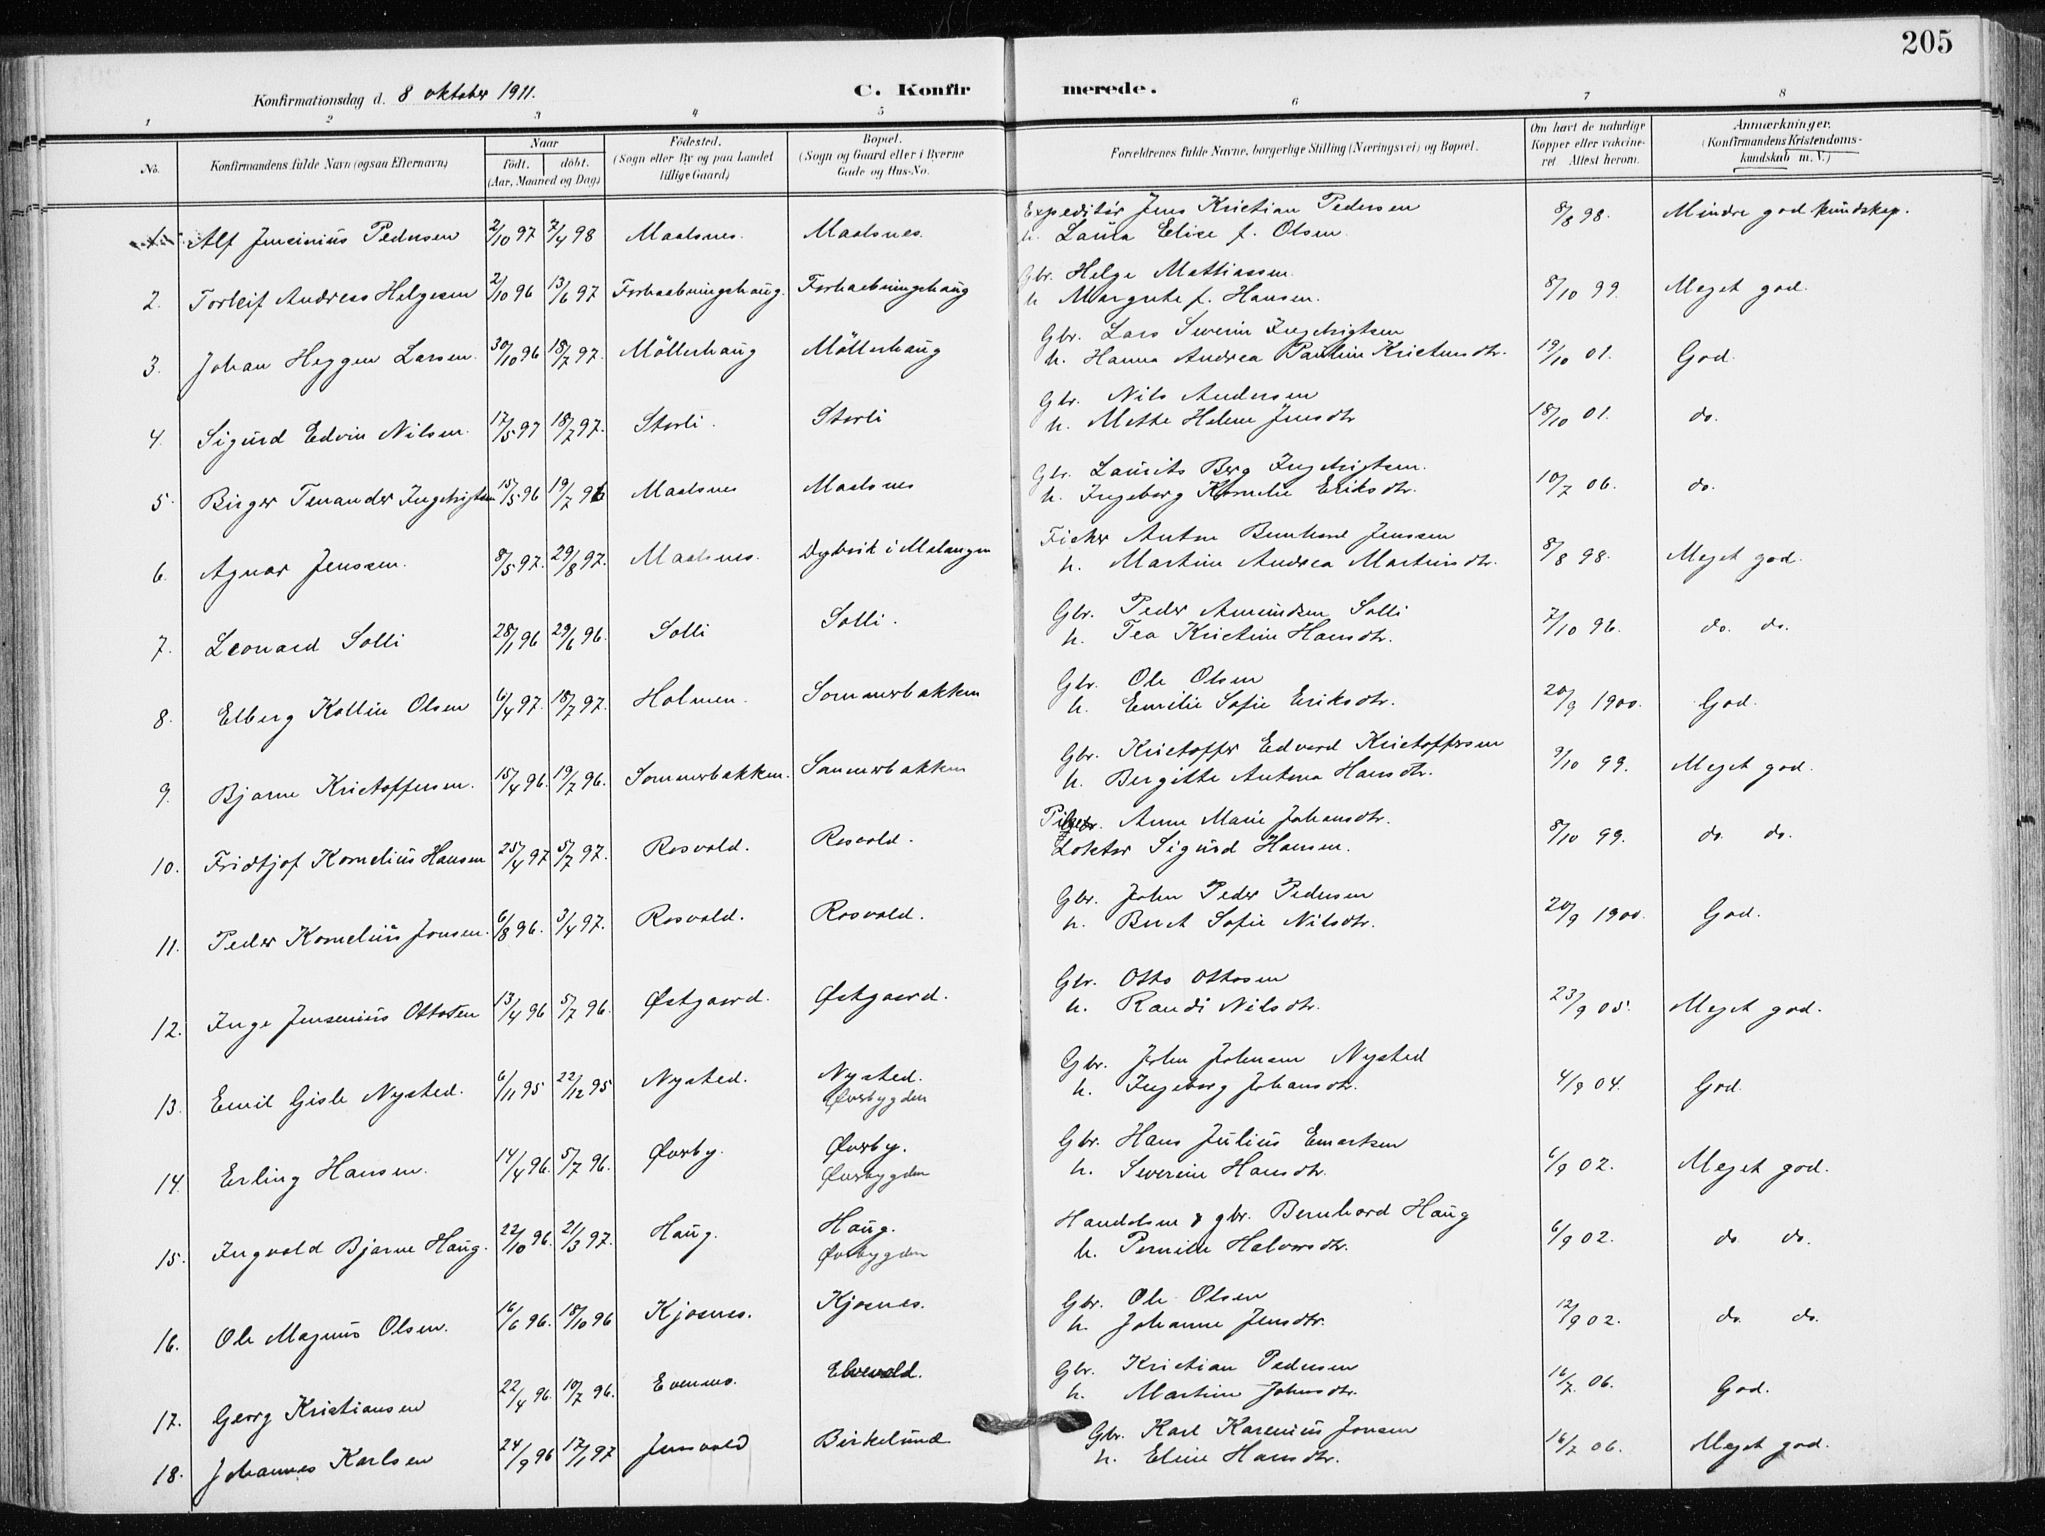 205
Konfirmationsdag d. 8 oktober 1911. C. Konfir merede.
1 2 3 4 5 6 7 8
No. Konfirmandens fulde Navn (ogsaa Efternavn) Naar født. døbt. (Aar, Maaned og Dag) Födested. (Sogn eller By og paa Landet tillige Gaard) Bopæl. (Sogn og Gaard eller i Byerne Gade og Hus-No. Forældrenes fulde Navne, borgerlige Stilling (Næringsvei) og Bopæl. Om havt de naturlige Kopper eller vakcineret. Attest herom. Anmærkninger. (Konfirmandens Kristendomskundskab m. V.)
1. Alf Jensinius Pedersen 2/10 97 7/4 98 Maalsnes. Maalsnes. Expeditør Jens Kristian Pedersen 8/8 98. Mindre god kundskap.
h. Laura Elise f. Olsen.
2. Torleif Andreas Helgesen 2/10 96 13/6 97 Forhaabningshaug. Forhaabningshaug Gbr. Helge Mathiassen. 8/10 99. Meget god.
h. Margrete f. Hansen.
3. Johan Heggen Larsen. 30/10 96 18/7 97. Möllerhaug Möllerhaug Gbr. Lars Severin Ingebrigtsen 19/10 01. God.
h. Hanna Andrea Pauline Kristensdtr.
4. Sigurd Edvin Nilsen. 17/5 97 18/7 97. Storli. Storli Gbr. Nils Andersen 18/10 01. do.
h. Mette Helene Jensdtr
5. Birger Tenander Ingebrigtsen 15/5 96 19/7 96 Maalsnes Maalsnes Gbr. Laurits Berg Ingebrigtsen. 10/7 06. do.
h. Ingeborg Kornelie Eriksdtr.
6. Agnar Jenssen. 8/5 97. 29/8 97. Maalsnes. i Malangen Fisker Anton Bernhard Jenssen 8/8 98. Meget god.
h. Martine Andrea Martinsdtr.
7. Leonard Solli 28/1 96 29/6 96. Solli Solli. Gbr. Peder Amundsen Solli 7/10 96. do. do.
h. Tea Kristine Hansdtr.
8. Elberg Kollin Olsen 6/4 97. 18/7 97. Holmen. Sommerbakken Gbr. Ole Olsen 20/9 1900. God.
h. Emilie Sofie Eriksdtr.
9. Bjarne Kristoffersen. 15/4 96. 19/7 96. Sommerbakken. Sommerbakken Gbr. Kristoffer Edvard Kristoffersen 9/10 99. Meget god.
h. Bergitte Antona Hansdtr.
10. Fridtjof Kornelius Hansen 25/4 97 5/7 97. Rosvold. Rosvold. Anne Marie Johansdtr. 8/10 99. do do.
Sigurd Hansen.
11. Peder Kornelius Jonsen. 6/8 96. 3/4 97. Rosvold. Rosvold. Gbr. John Peder Pedersen 20/9 1900. God.
h. Berit Sofie Nilsdtr.
12. Inge Jensenius Ottosen 13/4 96 5/7 96. Østgaard. Østgaard. Gbr. Otto Ottosen 23/9 05. Meget god.
h. Randi Nilsdtr.
13. Emil Gisle Nysted. 6/11 95 22/12 95 Nysted. Nysted. Gbr. John Johnsen Nysted 4/9 04. God.
Øverbygden h. Ingeborg Johansdtr.
14. Erling Hansen. 14/4 96. 5/7 96. Øverby. Øverby. Gbr. Hans Julius Enoksen 6/9 02. Meget god.
Øverbygden h. Severine Hansdtr.
15. Ingvald Bjarne Haug. 22/10 96. 21/3 97. Haug. Haug. Handelsm & gbr. Bernhard Haug 6/9 02. do do.
Øverbygden h. Pernille Halvorsdtr.
16. Ole Magnus Olsen. 16/6 96. 18/10 96 Kjosnes. Kjosnes. Gbr. Ole Olsen 12/9 02. do. do.
h. Johanne Jensdtr.
17. Georg Kristiansen 22/4 96. 10/7 96. Evenmo. Elvevold. Gbr. Kristian Pedersen 16/7. 06. God.
h. Martine Johnsdtr.
18. Johannes Karlsen 24/9 96 17/1 97 Jensvold Birkelund Gbr. Karl Karenius Jonsen 16/7 06. Meget god.
h. Eline Hansdtr.